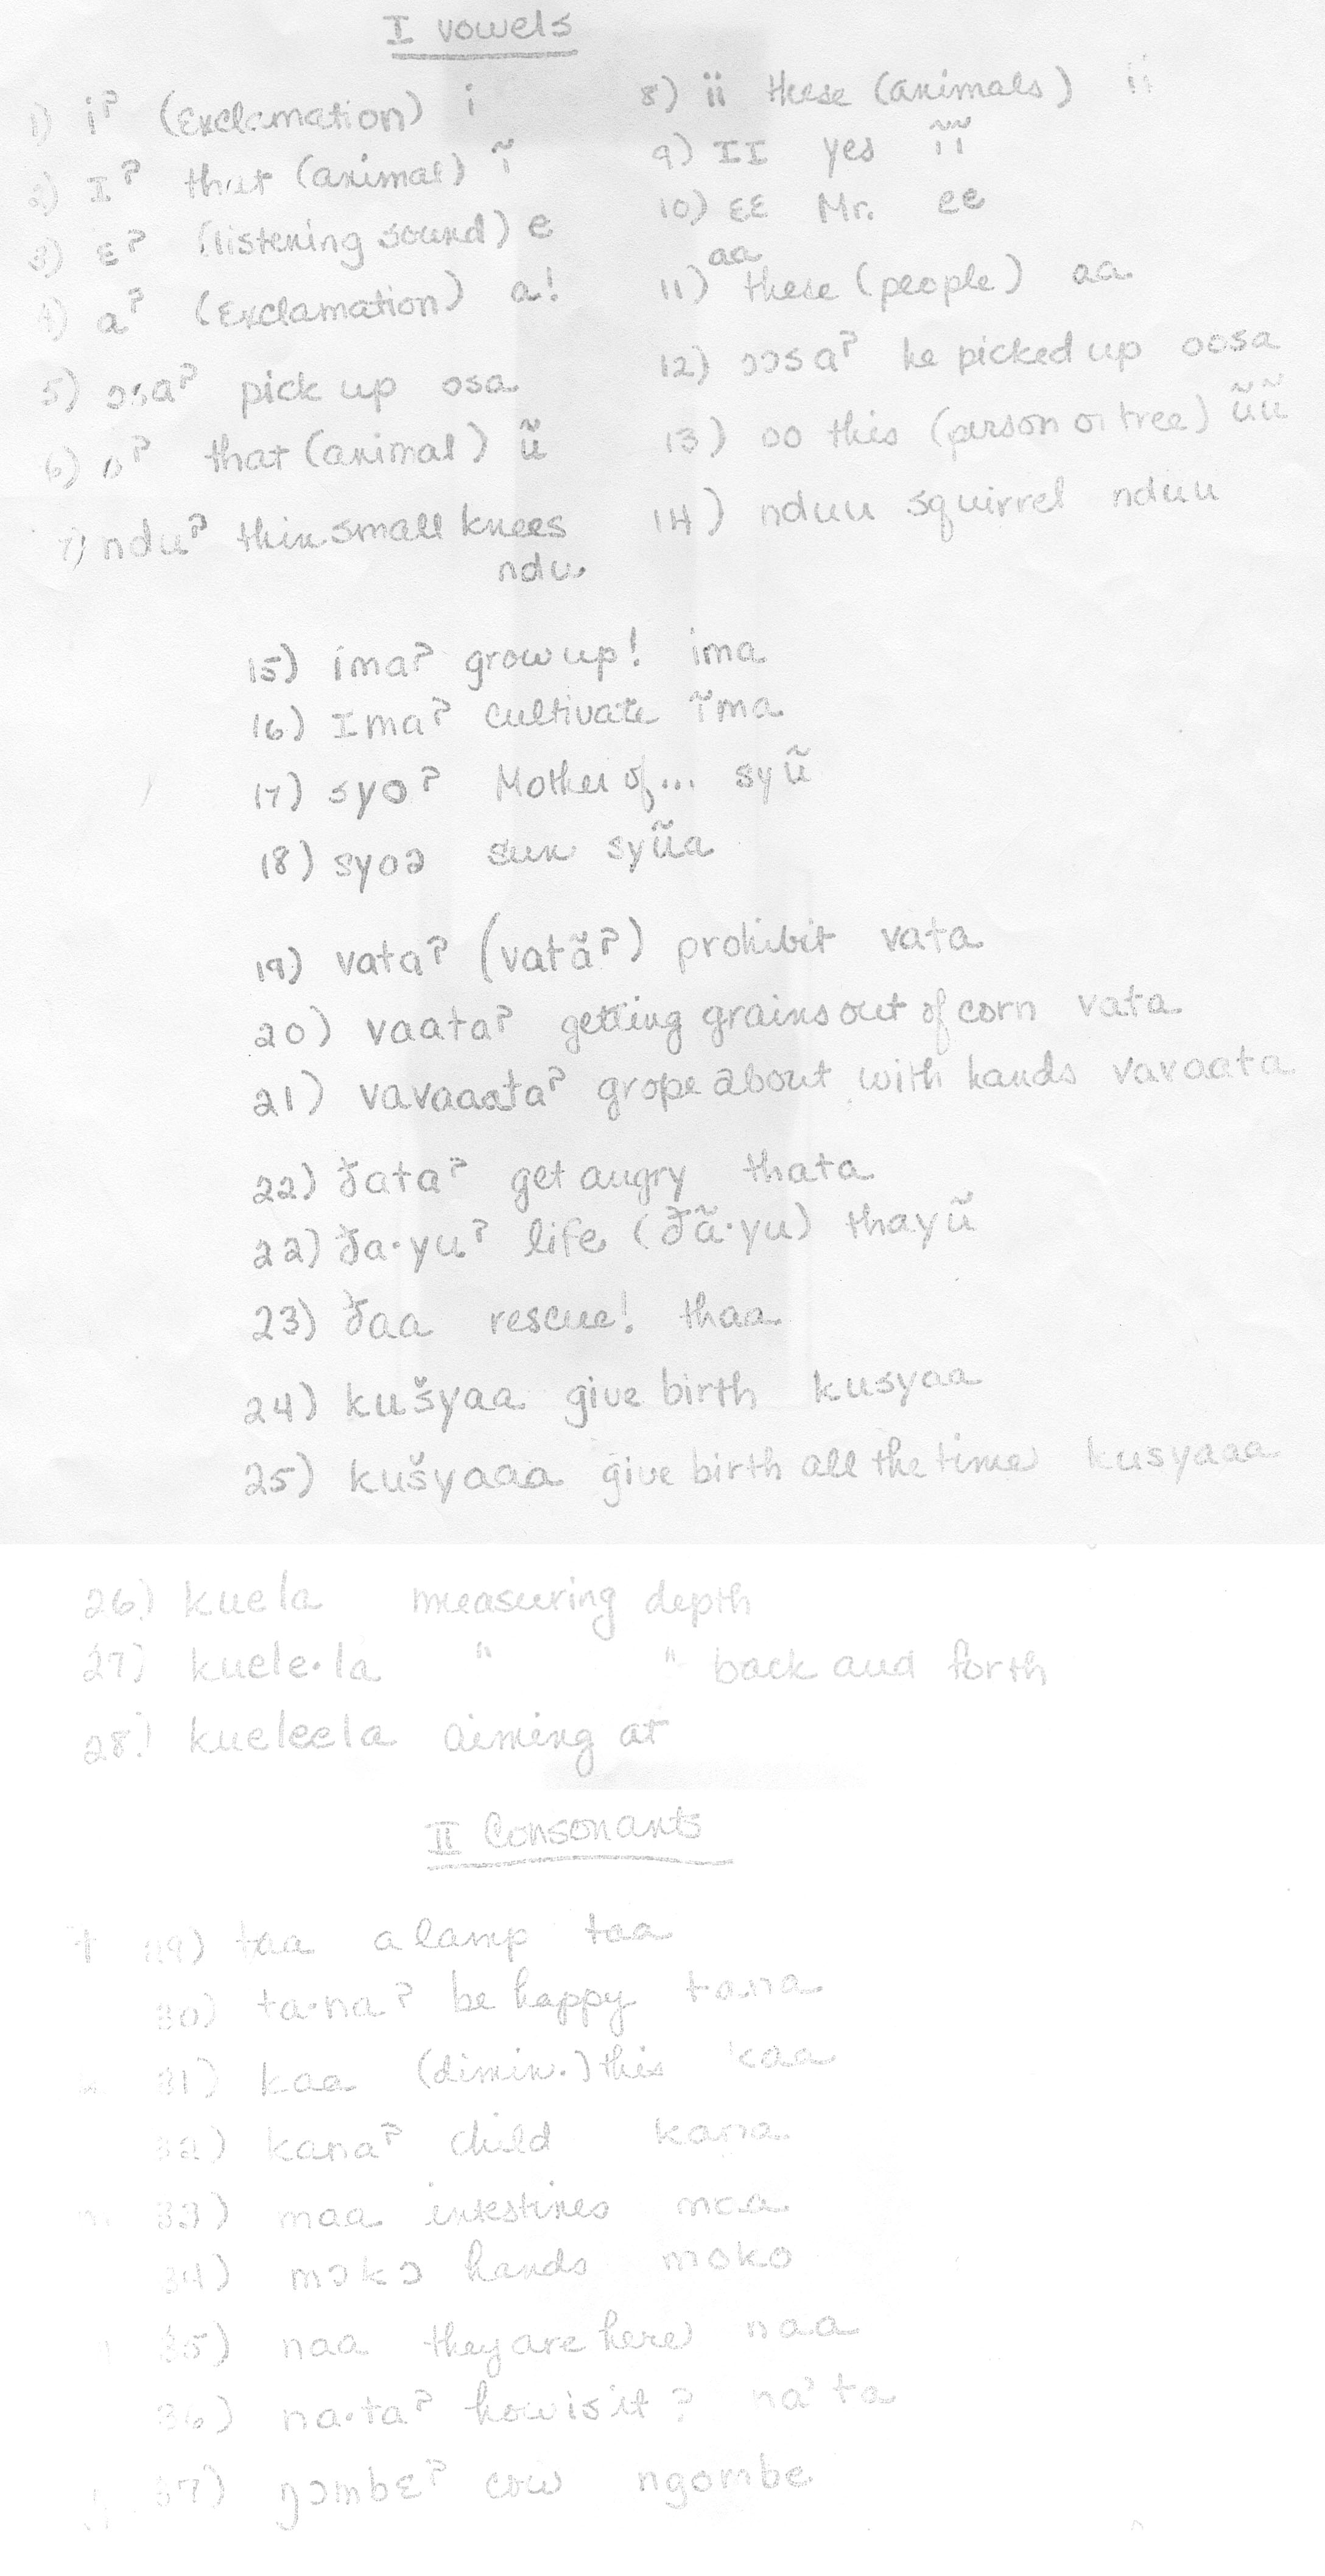 I vowels
1) iʔ (Exclamation) i
2) Iʔ that (animal) ĩ
3) ɛʔ (listening sound) e
4) aʔ (Exclamation) a!
5) ɔsaʔ pick up osa
6) oʔ that (animal) ũ
7) nduʔ thin small knees
ndu
8) ii these (animals) ii
9) II yes ĩĩ
10) ɛɛ Mr. ee
11) aa these (people) aa
12) ɔɔsaʔ he picked up oosa
13) oo this (person or tree) ũũ
14) nduu squirrel nduu
15) imaʔ grow up! ima
16) Imaʔ cultivate ĩma
17) syoʔ Mother of... syũ
18) syoa sun syũa
19) vataʔ (vatãʔ) prohibit vata
20) vaataʔ getting grains out of corn vata
21) vavaaataʔ grope about with hands vavaata
22) ðataʔ get angry thata
22) ða·yuʔ life (ðã·yu) thayũ
23) ðaa rescue! thaa
24) kušyaa give birth kusyaa
25) kušyaaa give birth all the time kusyaaa
26) kuela measuring depth
27) kuele·la " " back and forth
28) kueleela aiming at
II Consonants
t 29) taa a lamp taa
30) ta·naʔ be happy tana
k 31) kaa (dimin.) this kaa
32) kanaʔ child kana
m 33) maa intestines maa
34) mɔkɔ hands moko
35) naa they are here naa
36) na·taʔ how is it? na'ta
37) ŋɔmbɛʔ cow ngombe